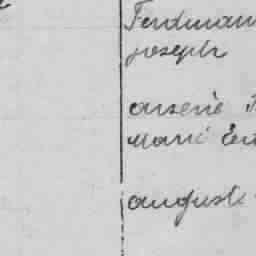 Ferdinan
joseph
arsène
Marie
august